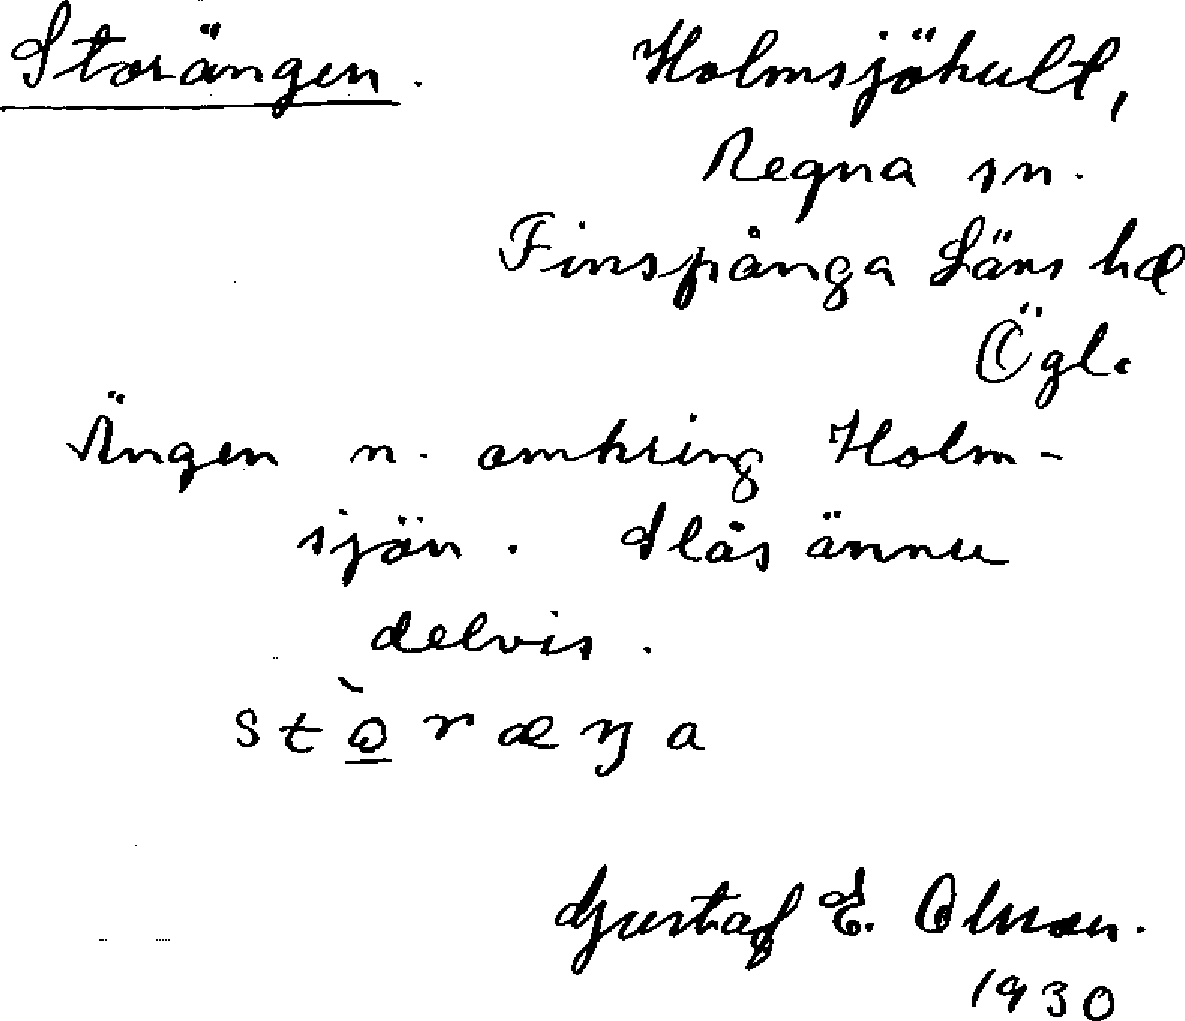 Storängen.
Holmsjöhult,
Regna sn.
Finspånga Läns hd
Ögl.
Ängen n. omkring Holm-
sjön. Slås ännu
delvis.
Gustaf E. Olsson.
1930